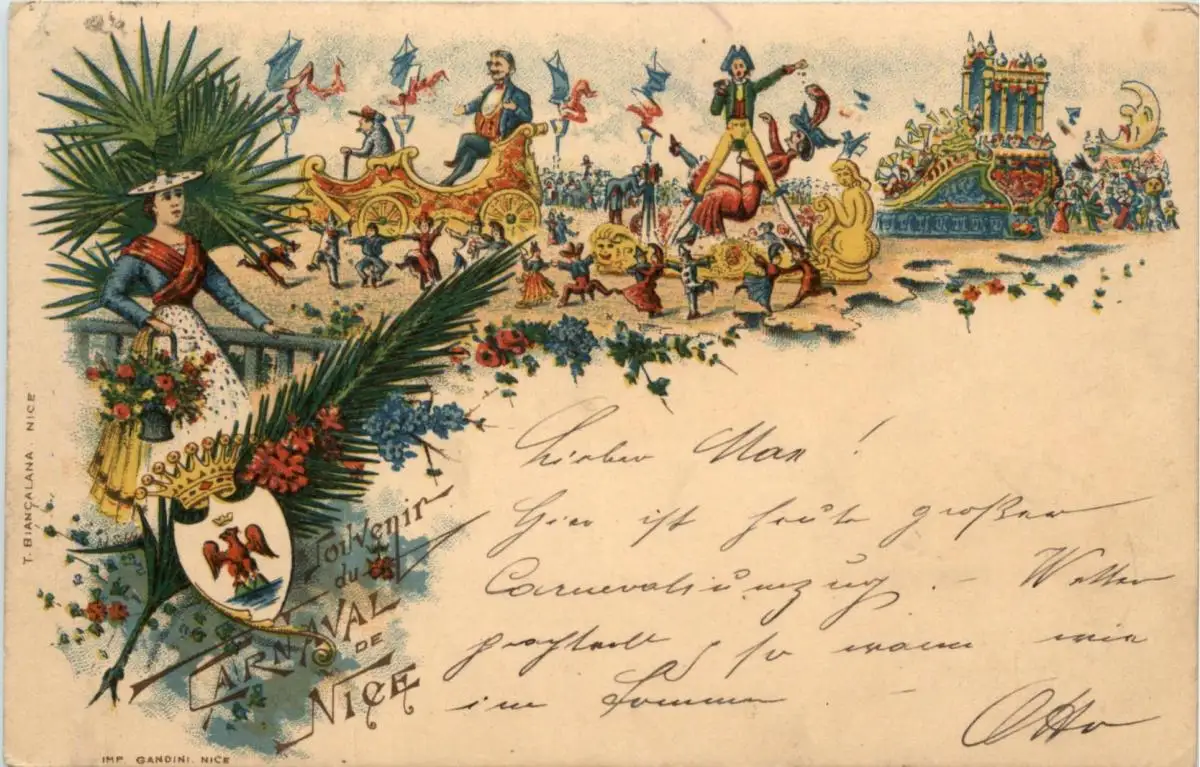 T. BIANÇALANA. NICE
Souvenir
du
CARNAVAL
DE
NICE
IMP. GANDINI. NICE
Lieber Max!
Hier ist heute großer
Carnevalsumzug. – Wetter
prachtvoll, so warm wie
im Sommer
Otto